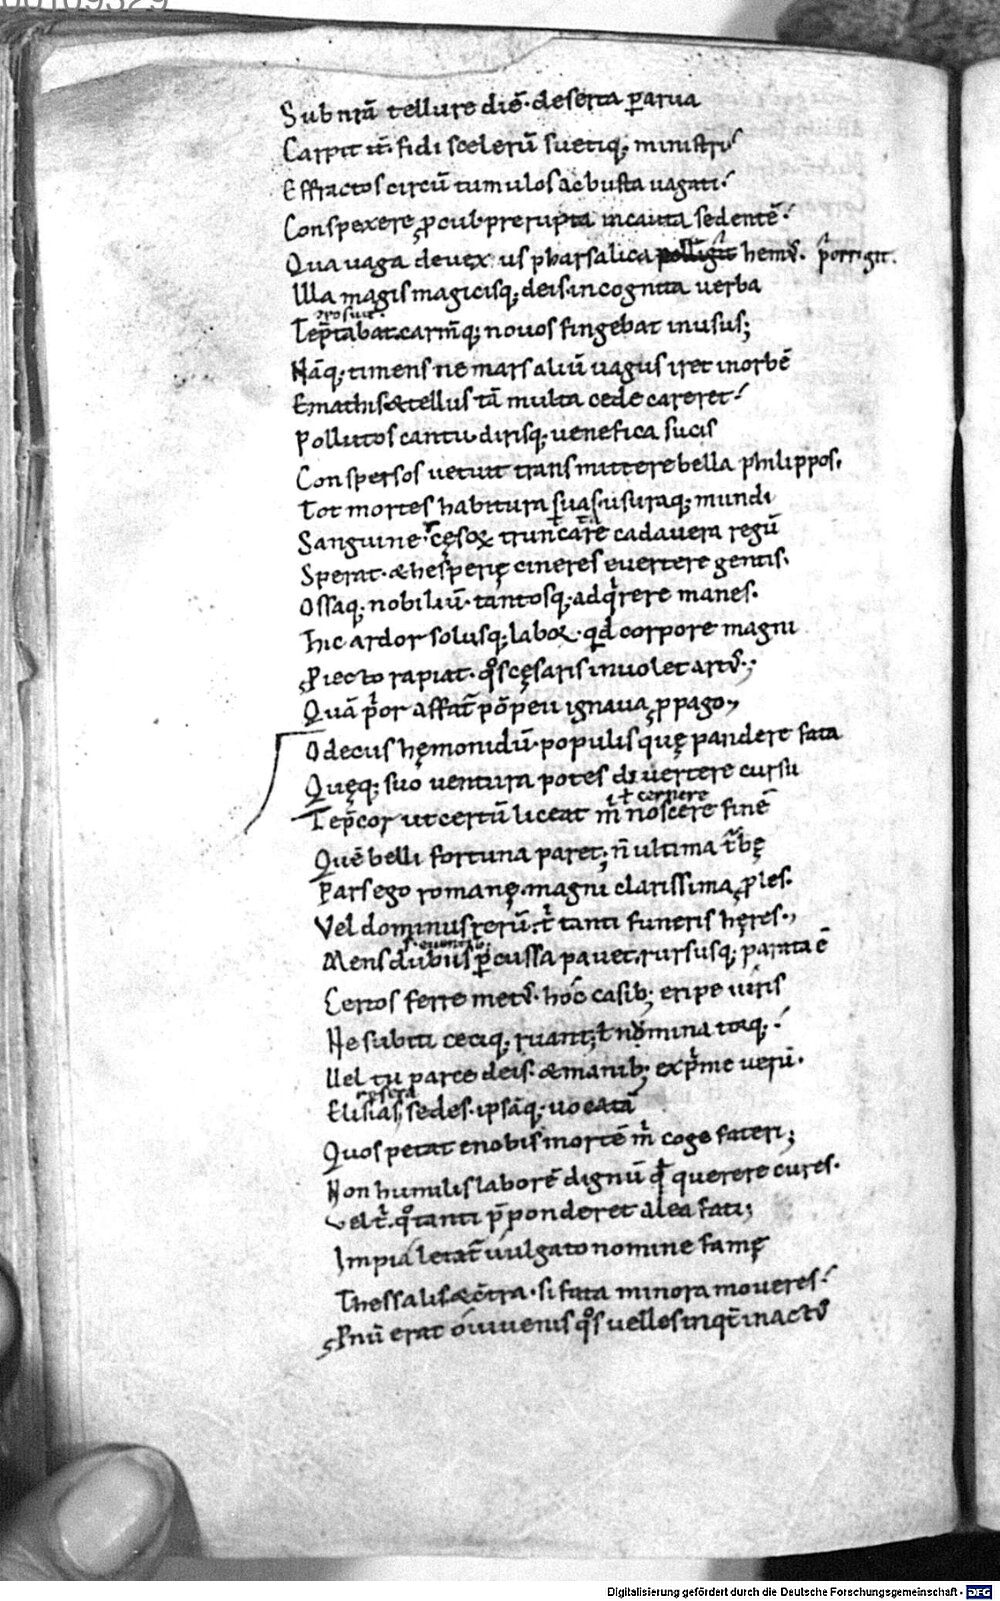 00109329
Sub nr̄ā tellure diē· deserta p̱ arua
Carpit iṫ· fidi scelerū suetiq; ministri
Effractos circū tumulos ac busta uagati
Conspexere ꝓcul prerupta in caute sedentē·
Qua uaga deuex us pharsalica hem9· porrigit.
Illa magis magicisq; deis incognita uerba
Tēptabat carmq; nouos fingebat in usus;
Nāq; timens ne mars aliū uagus iret in orbē
Emathis & tellus tā multa cede careret
Pollutos cantu dirisq; uenefica sucis
Conspersos uetuit transmittere bella philippos.
Tot mortes habitura suas· usuraq; mundi
Sanguine· cęsoꝝ truncare cadauera regū
Sperat· & hesperię cineres euertere gentis.
Ossaq; nobiliū· tantosq; adqrere manes.
Hic ardor solusq; laboꝛ· qd corpore magni
Piecto rapiat· qs cęsaris inuolet art9;
Quā pⁱor affat̄ pōpeii ignaua ꝓpago,
O decus hęmonidū· populis quę pandere fata
Quęq; suo uentura potes diuertere cursu
ł cernere
Tep̄cor ut certū liceat m̄ noscere finē
Quē belli fortuna paret; n̄ ultima t̄bę
Pars ego romanę· magni clarissima ꝓles.
Vel dominus rerū· t̄ tanti funeris hęres·,
Mens dubiis p̱cussa pauet, rursusq; parata ē
Certos ferre met9· hoc casib; eripe uiris
Ne subiti ceciq; ruant; ł nomina torq;
Vel tu parce deis· & manib; exp̄me uerū·
resera
Elisias sedes· ipsāq; uocatā
Quos petat e nobis mortē m̄ coge fateri;
Non humilis laborē dignū qd querere cures·
vel t̄· qo tanti p̄ponderet alea fati;
Impia letat̄ uulgato nomine famę
Thessalis & c̄tra· si fata minora moueres
Pnū erat o iuuenis qs uelles inqt in act9
Digitalisierung gefördert durch die Deutsche Forschungsgemeinschaft - DFG